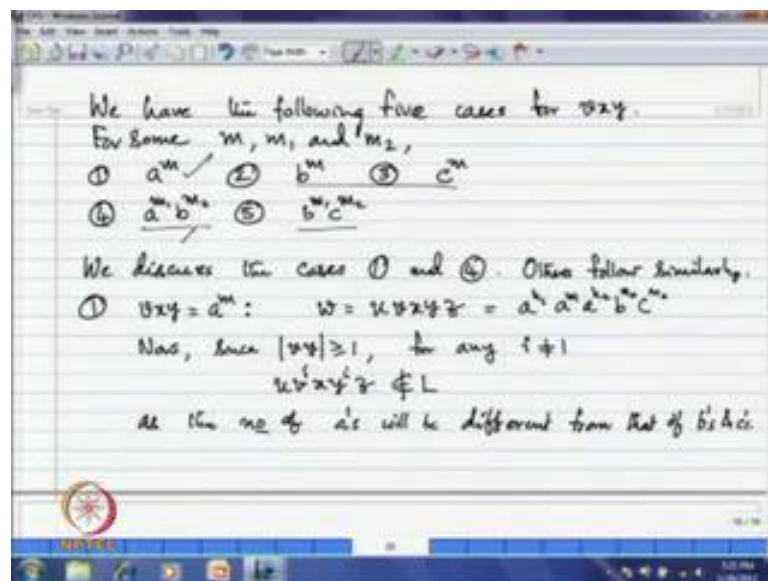 We have the following five cases for vxy.
For some m, m₁ and m₂,
① aᵐ ✓ ② bᵐ ③ cᵐ
④ aᵐ¹bᵐ² ⑤ bᵐ¹cᵐ²
We discuss the cases ① and ④. Others follow similarly.
① vxy = aᵐ : w = uvxyz =
Now, since |vy| ≥ 1, for any i ≠ 1
uvⁱxyⁱz ∉ L
as the no of a's will be different from that of b's & c's.
NPTEL